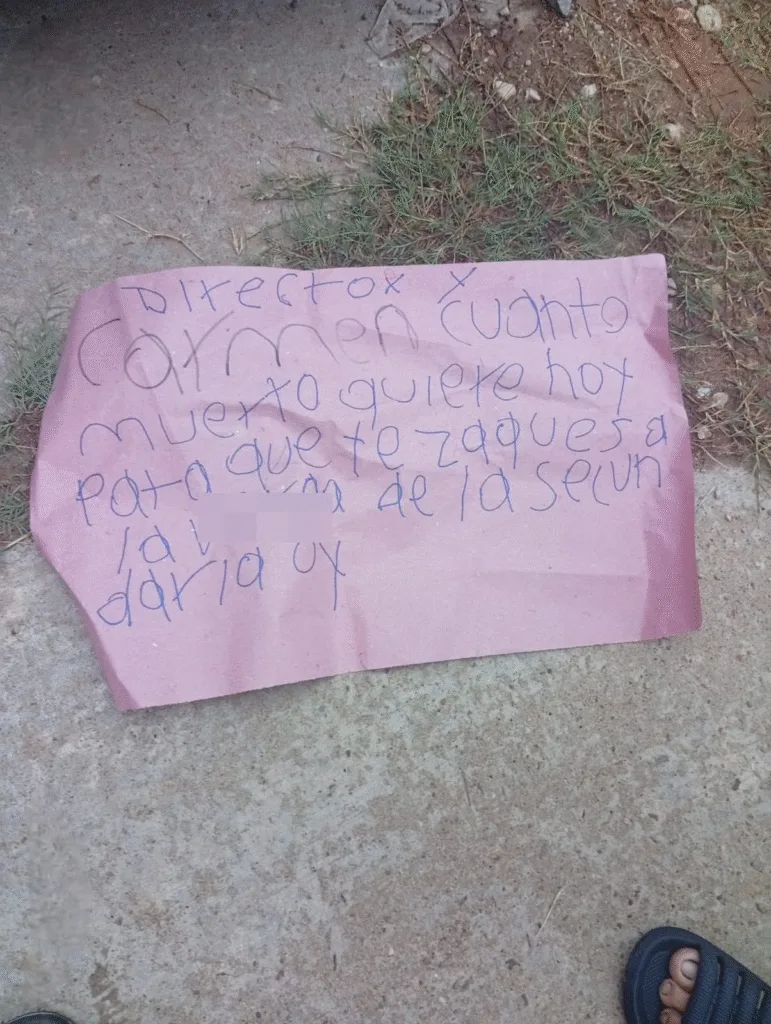 Director y
Carmen cuanto
muerto quiere hoy
para que te zaques a
la de la secun
daria uy